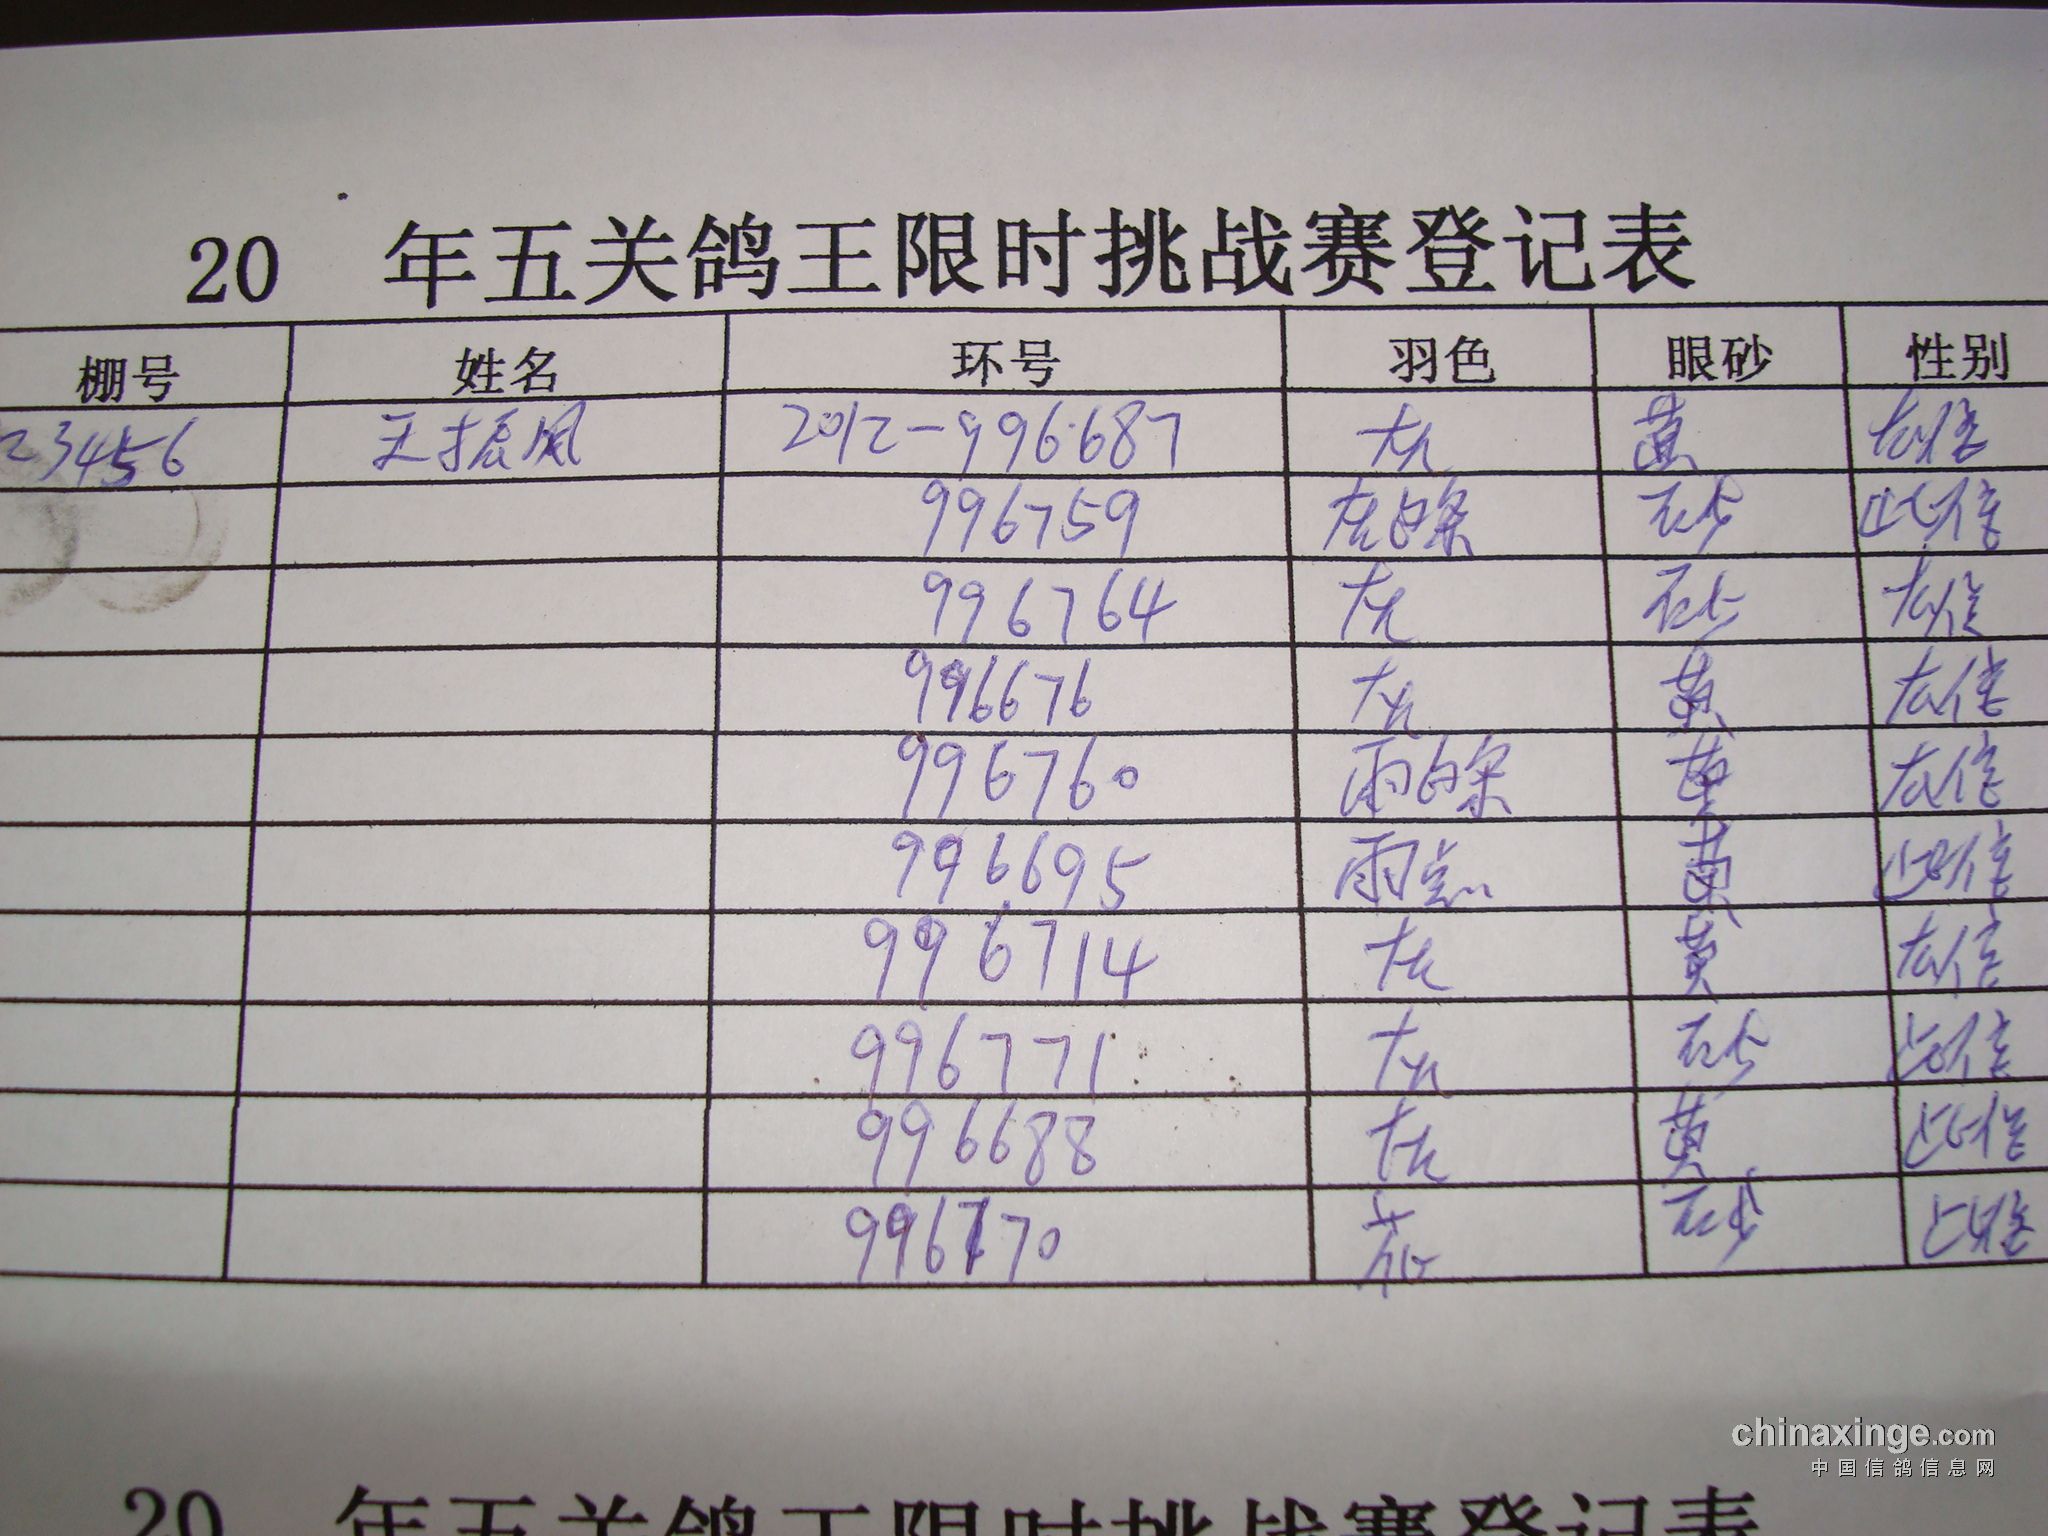 20 年五关鸽王限时挑战赛登记表
棚号 姓名 环号 羽色 眼砂 性别
23456 王振凤 2012-996687 灰 黄 雄
996759 灰白条 砂 雌
996764 灰 砂 雄
996676 灰 黄 雄
996760 雨白条 黄 雄
996695 雨点 黄 雌
996714 灰 黄 雄
996771 灰 砂 雌
996688 灰 黄 雌
996770 花 砂 雌
chinaxinge.com
中国信鸽信息网
20 年五关鸽王限时挑战赛登记表